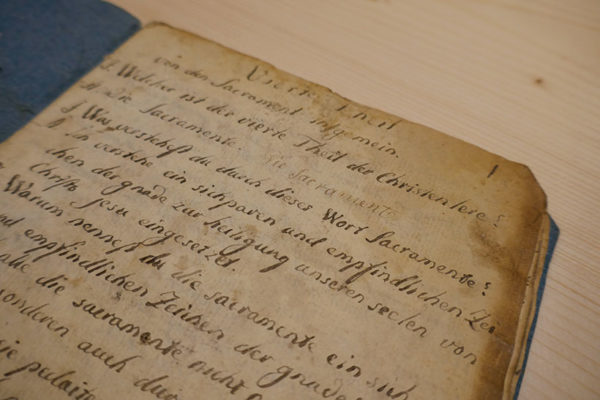 Theil
von den Sacrament ingemein.
Welcher ist der vierte Theil der Christenlere?
Die Sacramente. Die Sacramente
Was verstehest du durch dieses Wort Sacramente?
Ich verstehe ein sichparen und empfindlichen Zei-
chen der gnade zur heiligung unseren seelen von
Christo Jesu eingesetzet.
Warum nennest du die sacramente ein sich
und empfindlichen Zeichen der gnade
die sacramente nicht
sonderen auch dur
sie